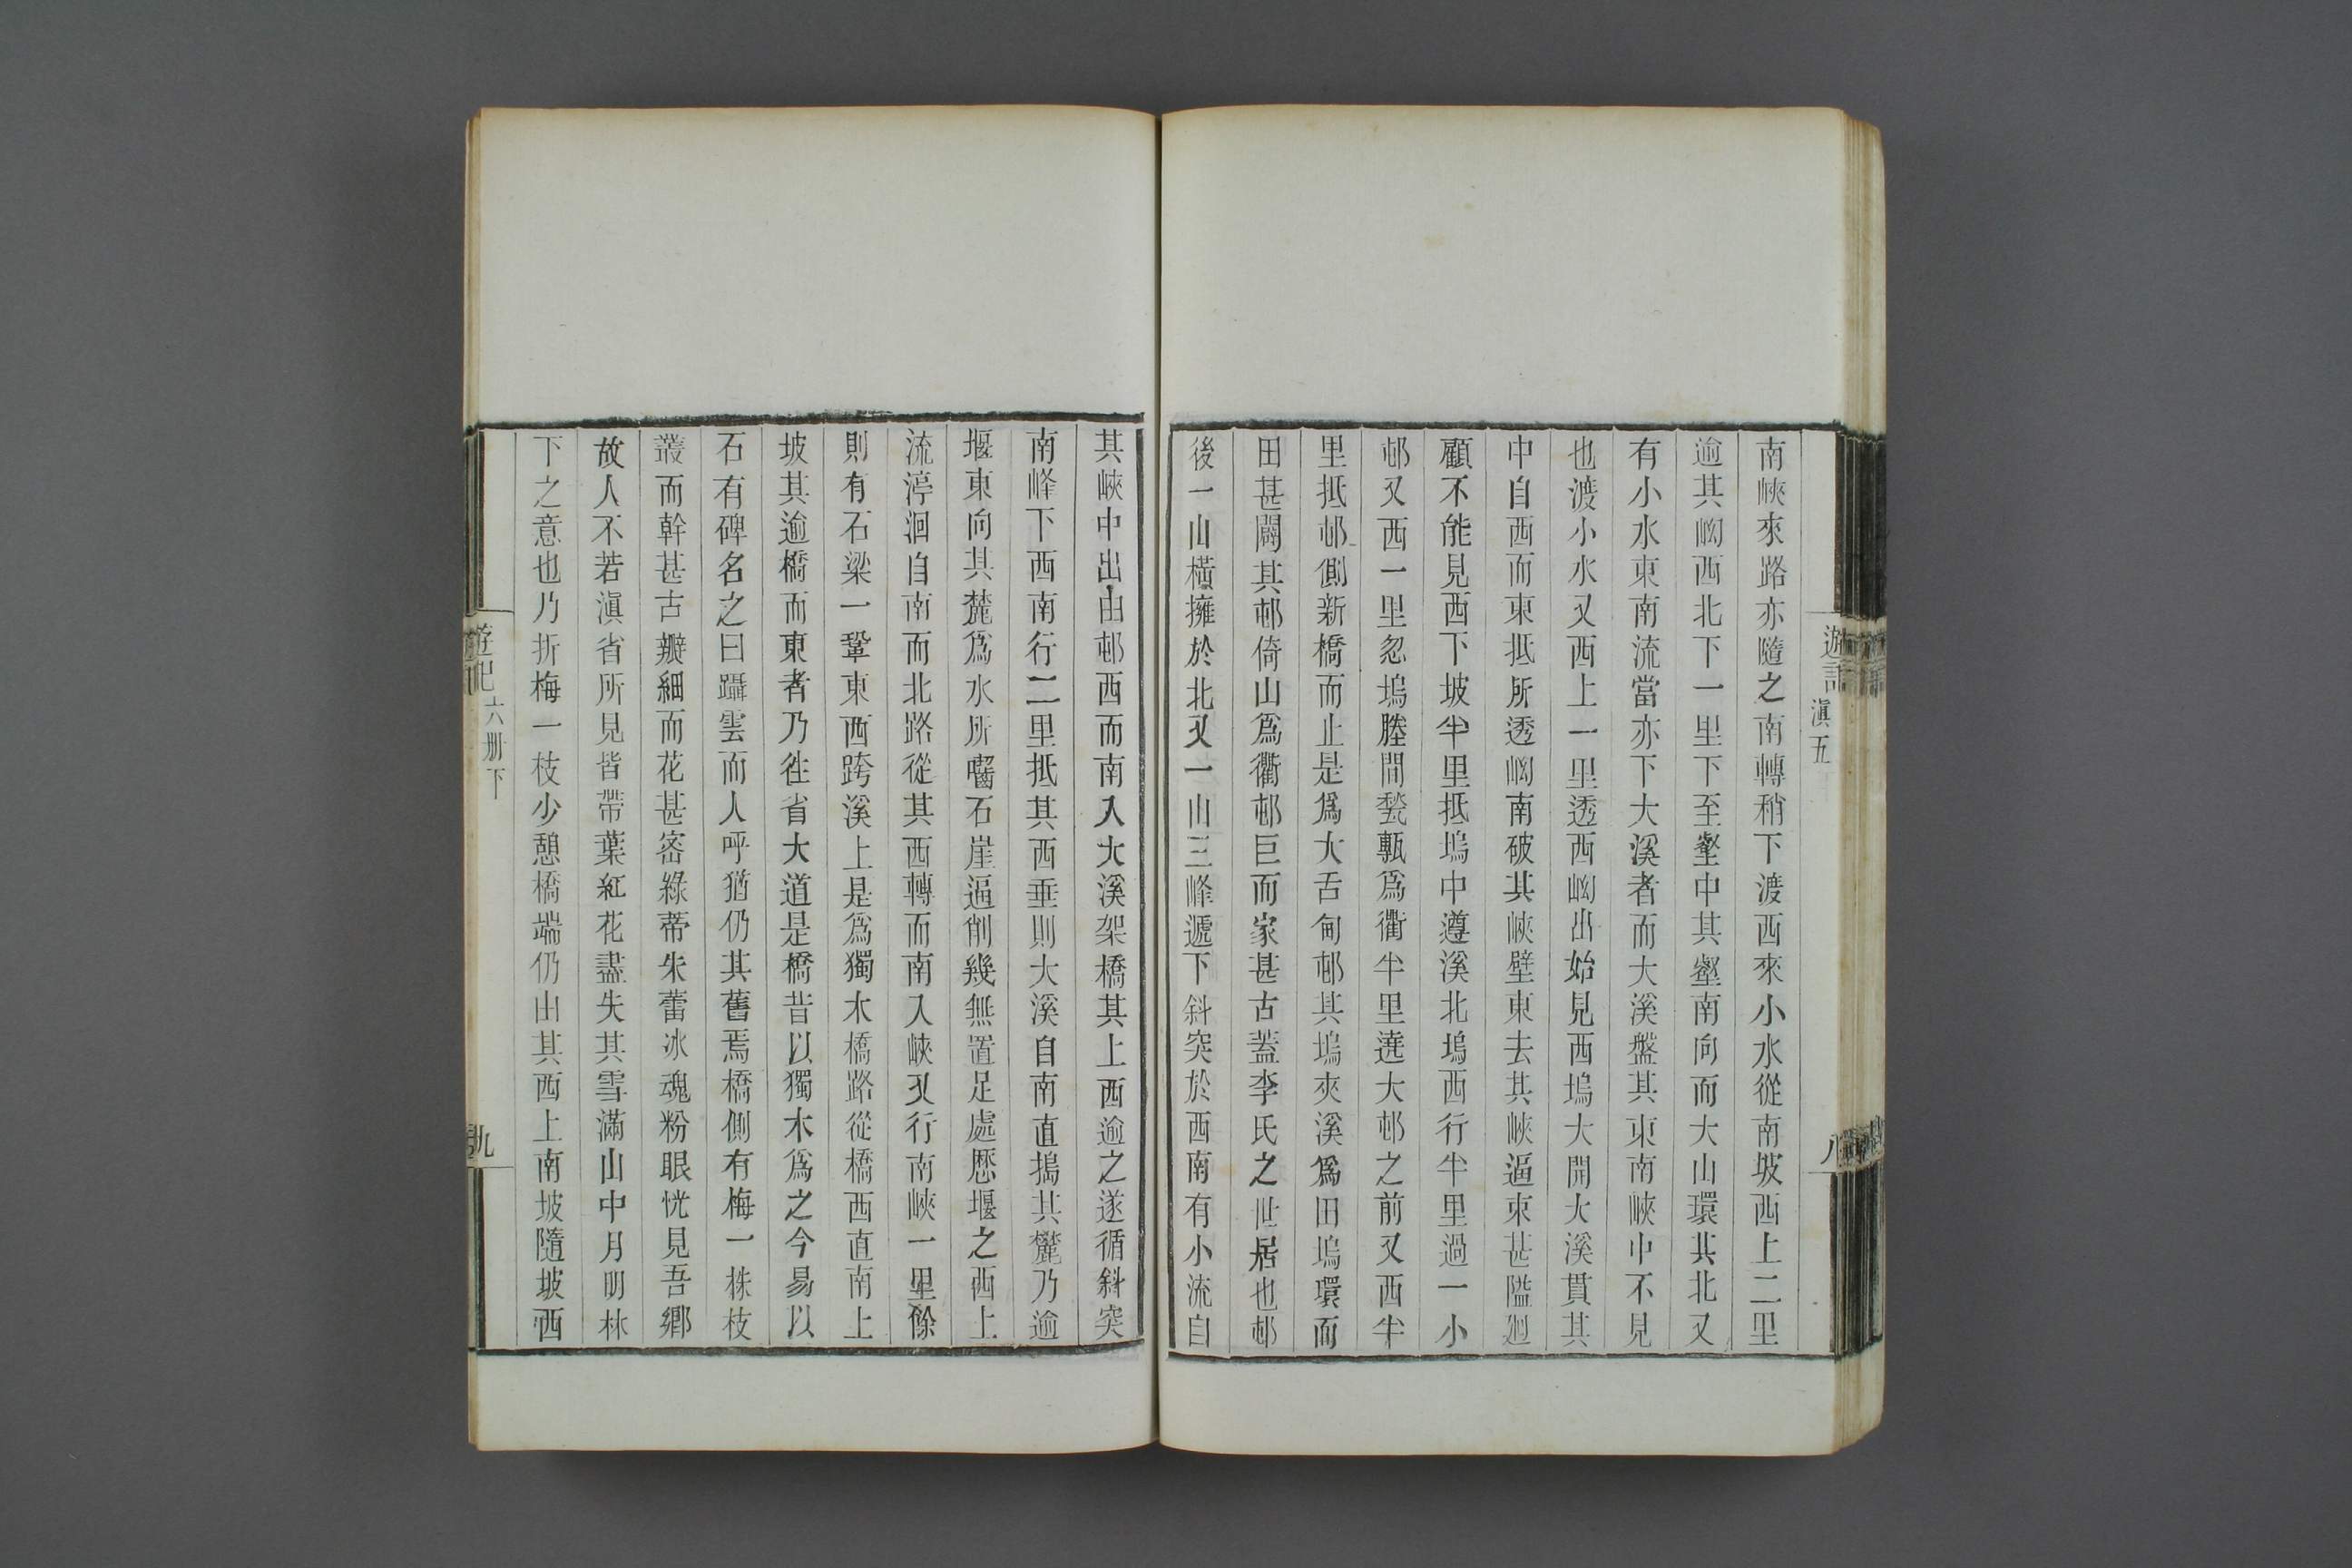 遊記
滇五
八
南峽來路亦隨之南轉稍下渡西來小水從南坡西上二里
逾其㘭西北下一里下至壑中其壑南向而大山環其北又
有小水東南流當亦下大溪者而大溪盤其東南峽中不見
也渡小水又西上一里透西㘭出始見西塢大開大溪貫其
中自西而東抵所透㘭南破其峽壁東去其峽逼束甚隘迴
顧不能見西下坡半里抵塢中遵溪北塢西行半里過一小
邨又西一里忽塢塍間甃甎爲衢半里遶大邨之前又西半
里抵邨側新橋而止是爲大舌甸邨其塢夾溪爲田塢環而
田甚闢其邨倚山爲衢邨巨而家甚古蓋李氏之世居也邨
後一山橫擁於北又一山三峰遞下斜突於西南有小流自
其峽中出由邨西而南入大溪架橋其上西逾之遂循斜突
南峰下西南行二里抵其西垂則大溪自南直搗其麓乃逾
堰東向其麓爲水所囓石崖逼削幾無置足處歷堰之西上
流渟洄自南而北路從其西轉而南入峽又行南峽一里餘
則有石梁一鞏東西跨溪上是爲獨木橋路從橋西直南上
坡其逾橋而東者乃徃省大道是橋昔以獨木爲之今易以
石有碑名之曰躡雲而人呼猶仍其舊焉橋側有梅一株枝
叢而幹甚古瓣細而花甚密綠蒂朱蕾冰魂粉眼恍見吾鄉
故人不若滇省所見皆帶葉紅花盡失其雪滿山中月明林
下之意也乃折梅一枝少憩橋端仍由其西上南坡隨坡西
遊記
六册下
九